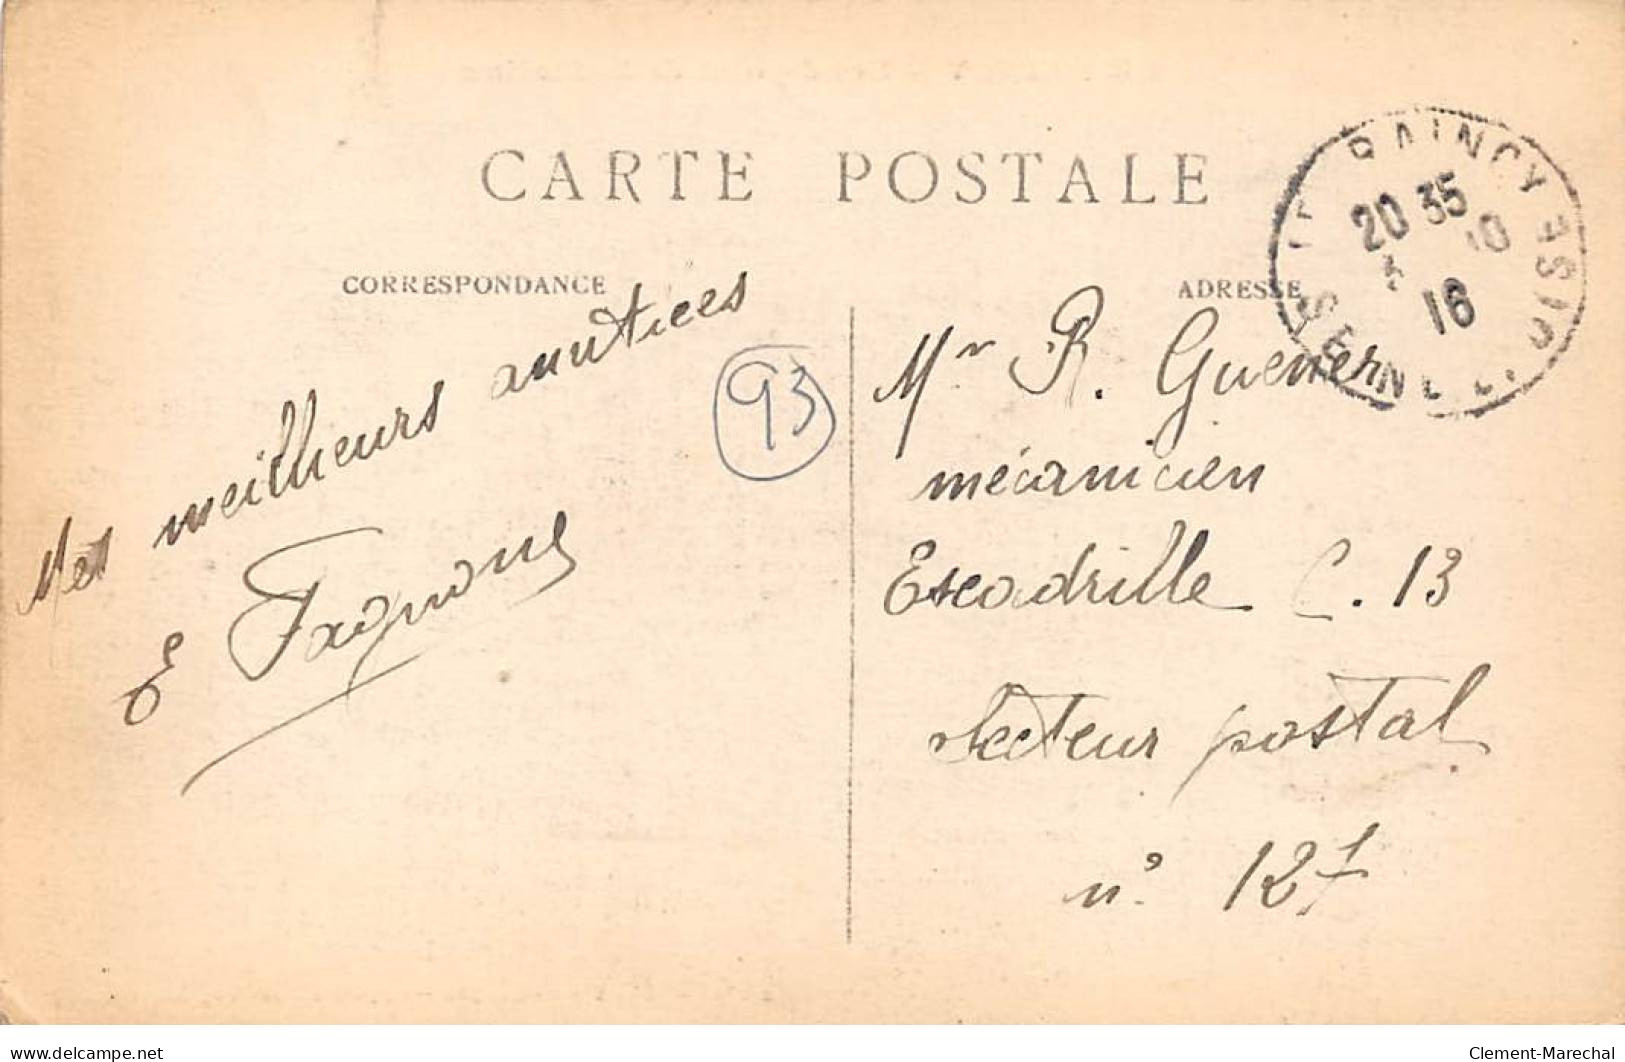 CARTE POSTALE
CORRESPONDANCE
ADRESSE
LE RAINCY
20 35
10
16
SEINE ET OISE
Mes meilleurs amitiées
E
93
Mr R.
mécanicien
Escadrille C. 13
Secteur postal
n° 127
delcampe.net
Clement-Marechal